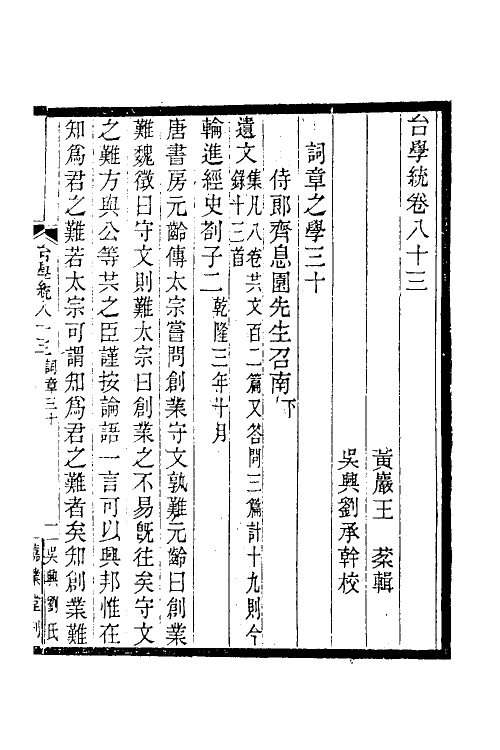 台學統卷八十三
黃巖王棻輯
吳興劉承幹校
詞章之學三十
侍郎齊息園先生召南下
遺文集凡八卷共文百二篇又答問三篇計十九則今
錄十三首
輪進經史劄子二乾隆三年十月
唐書房元齡傳太宗嘗問創業守文孰難元齡曰創業
難魏徵曰守文則難太宗曰創業之不易旣往矣守文
之難方與公等共之臣謹按論語一言可以興邦惟在
知爲君之難若太宗可謂知爲君之難者矣知創業難
台學統八十三 詞章三十 一 吳興劉氏
嘉業堂刊